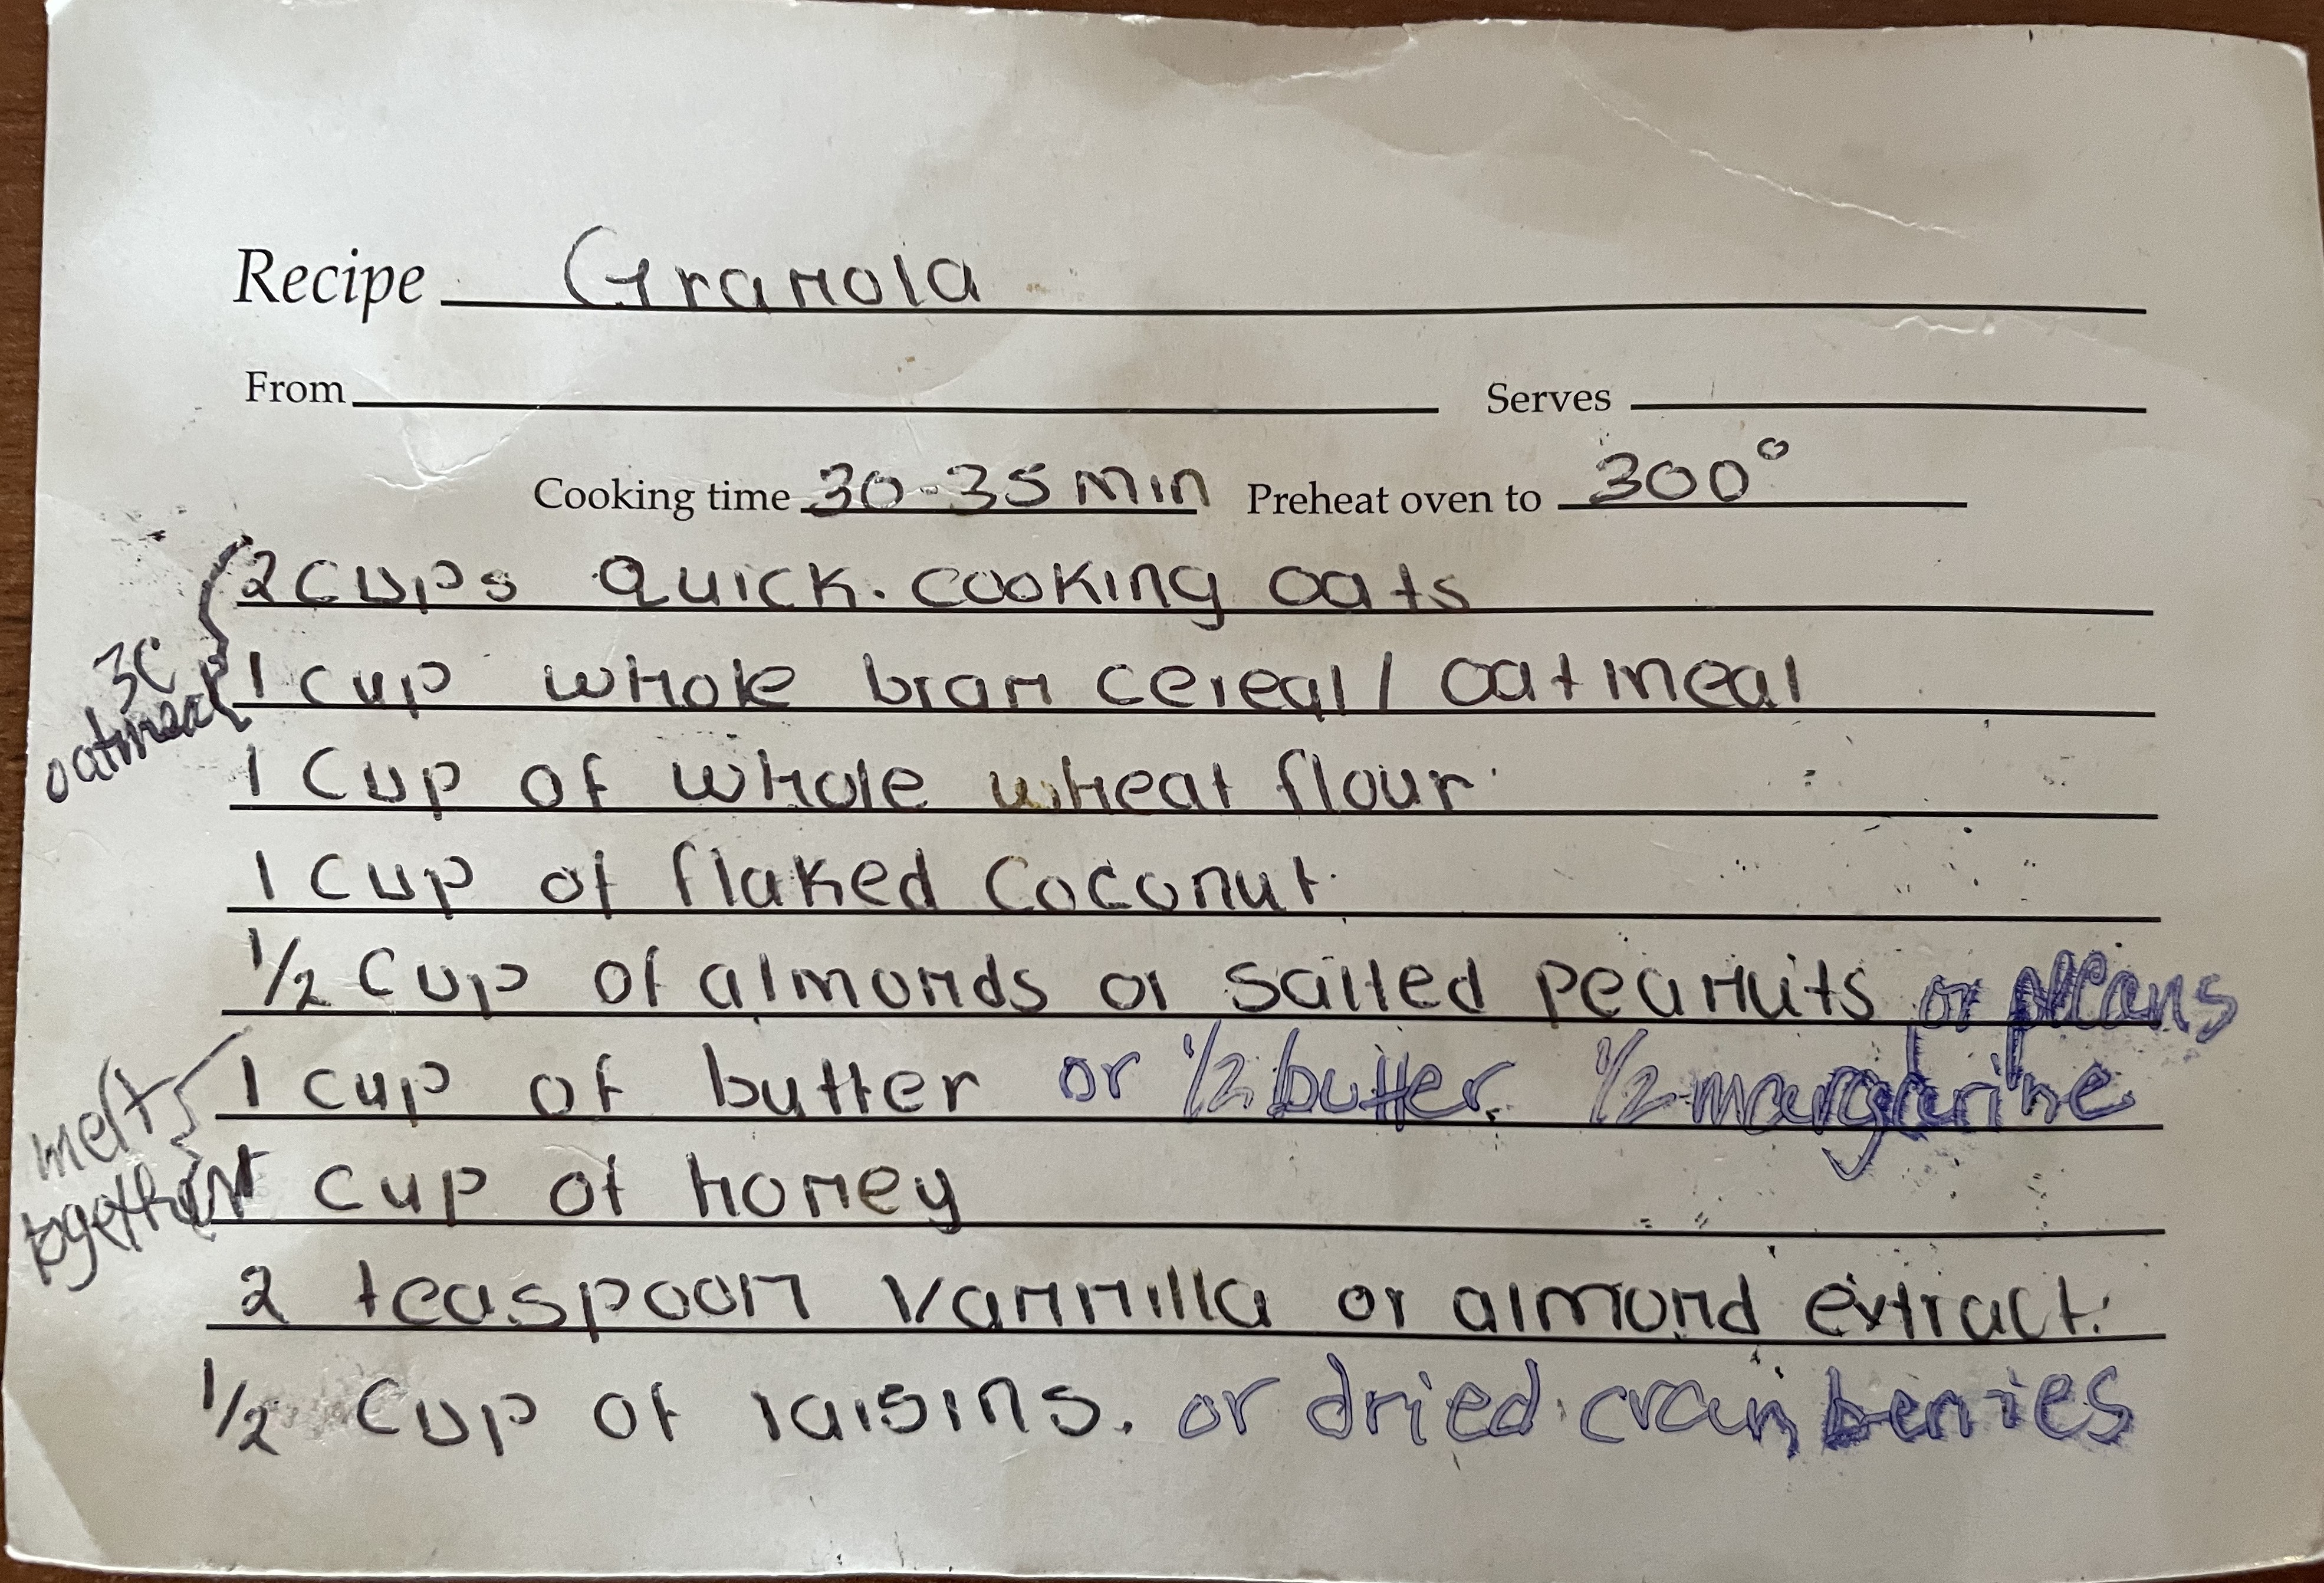 Recipe Granola
From Serves
Cooking time 30-35 min Preheat oven to 300°
2 cups quick-cooking oats
3C oatmeal
1 cup whole bran cereal / oatmeal
1 cup of whole wheat flour
1 cup of flaked coconut
1/2 cup of almonds or salted peanuts or pecans
1 cup of butter or 1/2 butter 1/2 margarine
melt together
1 cup of honey
2 teaspoon vannilla or almond extract.
1/2 cup of raisins. or dried cranberries